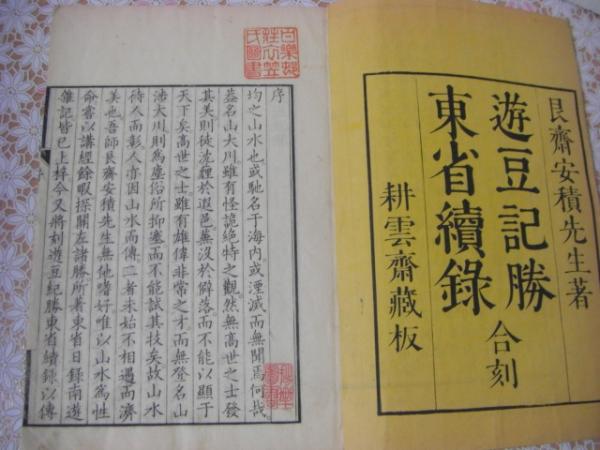 艮齋安積先生著
遊豆記勝
東省續錄
合刻
耕雲齋藏板
序
均之山水也或馳名于海内或湮滅而無聞焉何哉
蓋名山大川雖有怪詭絶特之觀然無高世之士發
其美則徒沈貍於遐邑蕪沒於僻落而不能以顯于
天下矣高世之士雖有雄偉非常之才而無登名山
涉大川則爲塵俗所抑塞而不能試其技矣故山水
待人而彰人亦因山水而傳二者未始不相遇而濟
美也吾師艮齋安積先生無他嗜好唯以山水爲性
命嘗以講經餘暇探關左諸勝所著東省日録南遊
雜記皆已上梓今又將刻遊豆紀勝東省續録以傳